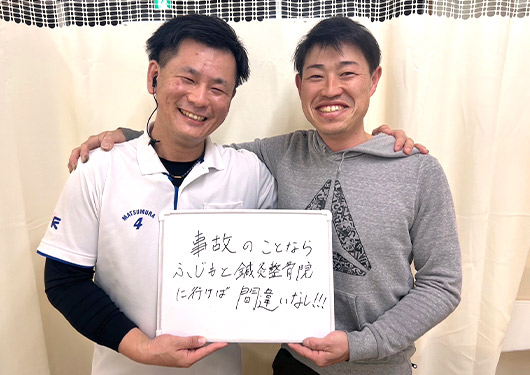 MATSUMURA
4
事故のことなら
ふじもと鍼灸整骨院
に行けば間違いなし!!!